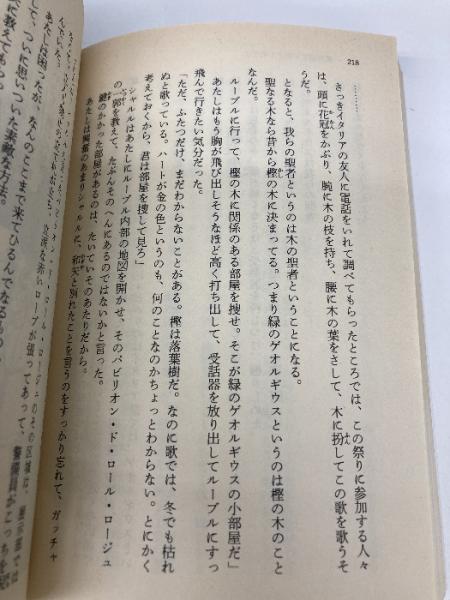 218
…………
さっきイタリアの友人に電話をいれて調べてもらったところでは、この祭りに参加する人々
は、頭に花冠をかぶり、腕に木の枝を持ち、腰に木の葉をさして、木に扮してこの歌を歌うそ
うだ。
となると、我らの聖者というのは木の聖者ということになる。
聖なる木なら昔から樫の木に決まってる。つまり緑のゲオルギウスというのは樫の木のこと
なんだ。
ルーブルに行って、樫の木に関係のある部屋を捜せ。そこが緑のゲオルギウスの小部屋だ」
あたしはもう胸が飛び出しそうなほど高く打ち出して、受話器を放り出してルーブルにすっ
飛んで行きたい気分だった。
「ただ、ふたつだけ、まだわからないことがある。樫は落葉樹だ。なのに歌では、冬でも枯れ
ぬと歌っている。ハートが金の色というのも、何のことなのかちょっとわからない。とにかく
考えておくから、君は部屋を捜して見ろ」
シャルルはあたしにルーブル内部の地図を開かせ、そのパビリオン・ド・ロール・ロージュ
の一郭を教えて、たぶんそのへんにあるのではないかと言った。
鍵のかかった部屋があるのは、たいていそのあたりだから。
あたしは興奮のあまりシャルルに、和矢と別れたことを言うのをすっかり忘れて、ガッチャ
ロール・ロージュのその区域は、展示部では
ロープが張ってあって、警備員がこっちを
あたしは困ったが、なんのここまで来てひるんでなるもの
して、ついに思いついた素敵な方法。